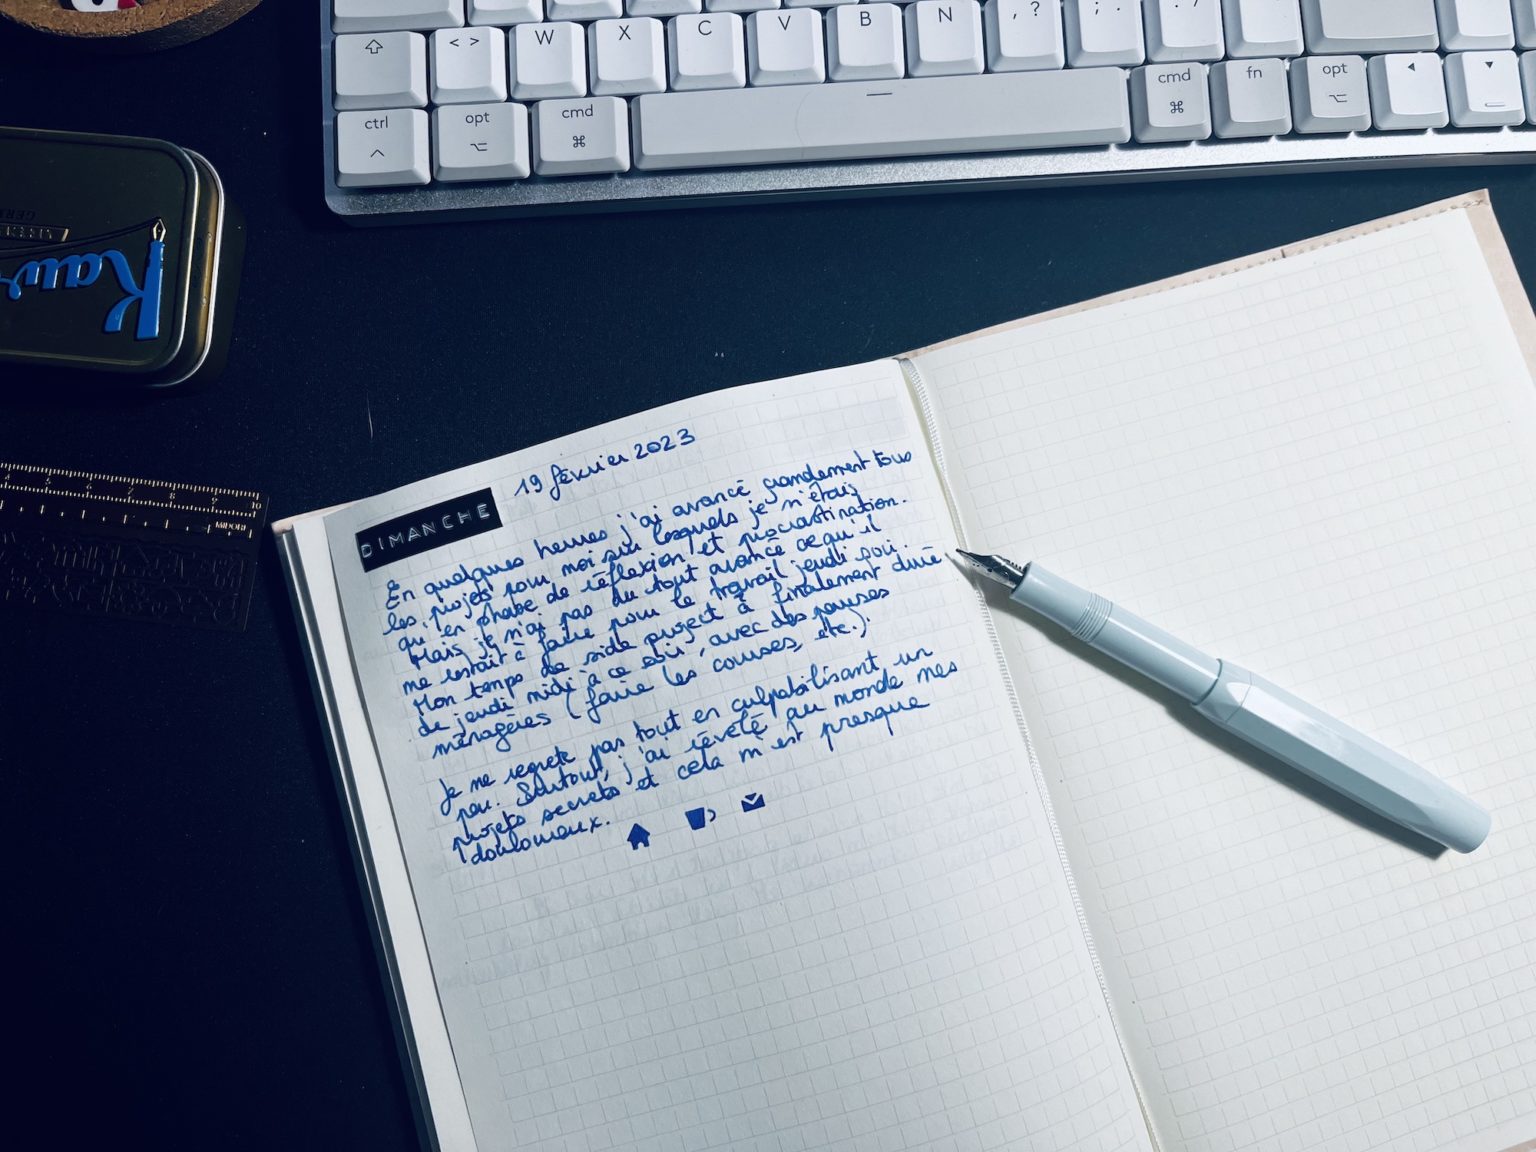 W X C V B N , ? ; . : /
< >
ctrl opt cmd cmd fn opt
Kaw
MIDORI
4 5 6 7 8 9 10
DIMANCHE
19 février 2023
En quelques heures j'ai avancé grandement tous
les projets pour moi sur lesquels je n'étais
qu'en phase de réflexion et procrastination.
Mais je n'ai pas du tout avancé ce qu'il
me restait à faire pour le travail jeudi soir.
Mon temps de side project a finalement duré
de jeudi midi à ce soir, avec des pauses
ménagères (faire les courses, etc.).
Je ne regrette pas tout en culpabilisant un
peu. Surtout, j'ai révélé au monde mes
projets secrets et cela m'est presque
douloureux.